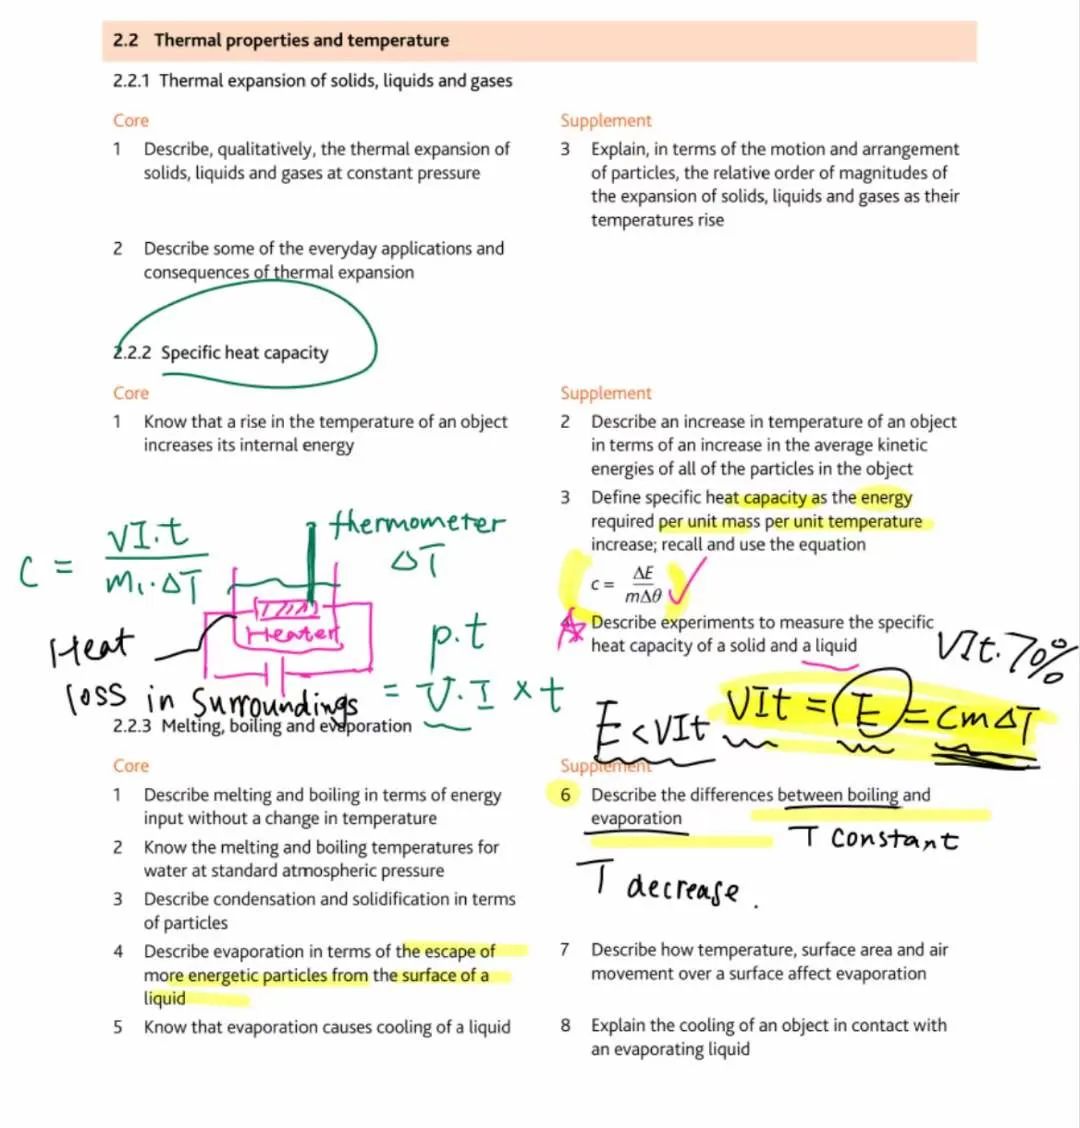 2.2 Thermal properties and temperature
2.2.1 Thermal expansion of solids, liquids and gases
Core
1 Describe, qualitatively, the thermal expansion of
solids, liquids and gases at constant pressure
2 Describe some of the everyday applications and
consequences of thermal expansion
Supplement
3 Explain, in terms of the motion and arrangement
of particles, the relative order of magnitudes of
the expansion of solids, liquids and gases as their
temperatures rise
2.2.2 Specific heat capacity
Core
1 Know that a rise in the temperature of an object
increases its internal energy
Supplement
2 Describe an increase in temperature of an object
in terms of an increase in the average kinetic
energies of all of the particles in the object
3 Define specific heat capacity as the energy
required per unit mass per unit temperature
increase; recall and use the equation
c = ΔE / mΔθ
Describe experiments to measure the specific
heat capacity of a solid and a liquid
C = VI.t / m₁.ΔT
thermometer
ΔT
Heater
Heat
loss in Surroundings
p.t
= V.I × t
VIt.70%
E < VIt
VIt = E = CmΔT
2.2.3 Melting, boiling and evaporation
Core
1 Describe melting and boiling in terms of energy
input without a change in temperature
2 Know the melting and boiling temperatures for
water at standard atmospheric pressure
3 Describe condensation and solidification in terms
of particles
4 Describe evaporation in terms of the escape of
more energetic particles from the surface of a
liquid
5 Know that evaporation causes cooling of a liquid
Supplement
6 Describe the differences between boiling and
evaporation
T constant
T decrease.
7 Describe how temperature, surface area and air
movement over a surface affect evaporation
8 Explain the cooling of an object in contact with
an evaporating liquid